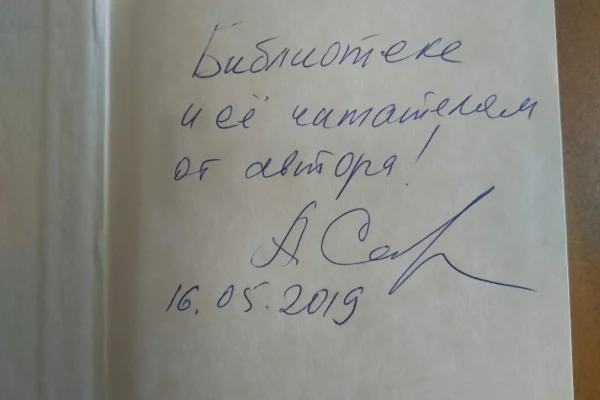 Библиотеке
и её читателям
от автора!
16.05.2019